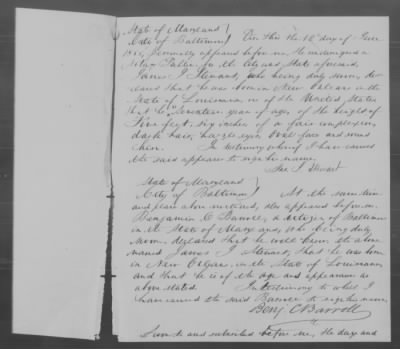 State of Maryland }
City of Baltimore } On this the 12th day of June
personally appeared before me the undersigned a
Notary Public, in the City and State aforesaid,
James J. Stewart, who being duly sworn, de-
clared that he was born in New Orleans in the
State of Louisiana, one of the United States
that he is years of age, of the height of
Five feet, six inches of a fair complexion,
dark hair, hazel eyes, Oval face and round
chin. In testimony whereof I have caused
the said appearer to sign his name.
Jas. J. Stewart
State of Maryland }
City of Baltimore } At the same time
and place above mentioned, also appeared before me
Benjamin C. Barroll, a citizen of Baltimore
in the State of Maryland, who being duly
sworn, declared that he well knew the above
named James J. Stewart, that he was born
in New Orleans, in the State of Louisiana,
and that he is of the age and appearance as
above stated. In testimony to what I
have caused the said Barroll to sign his name.
Benj. C. Barroll
Sworn to and subscribed before me, the day and